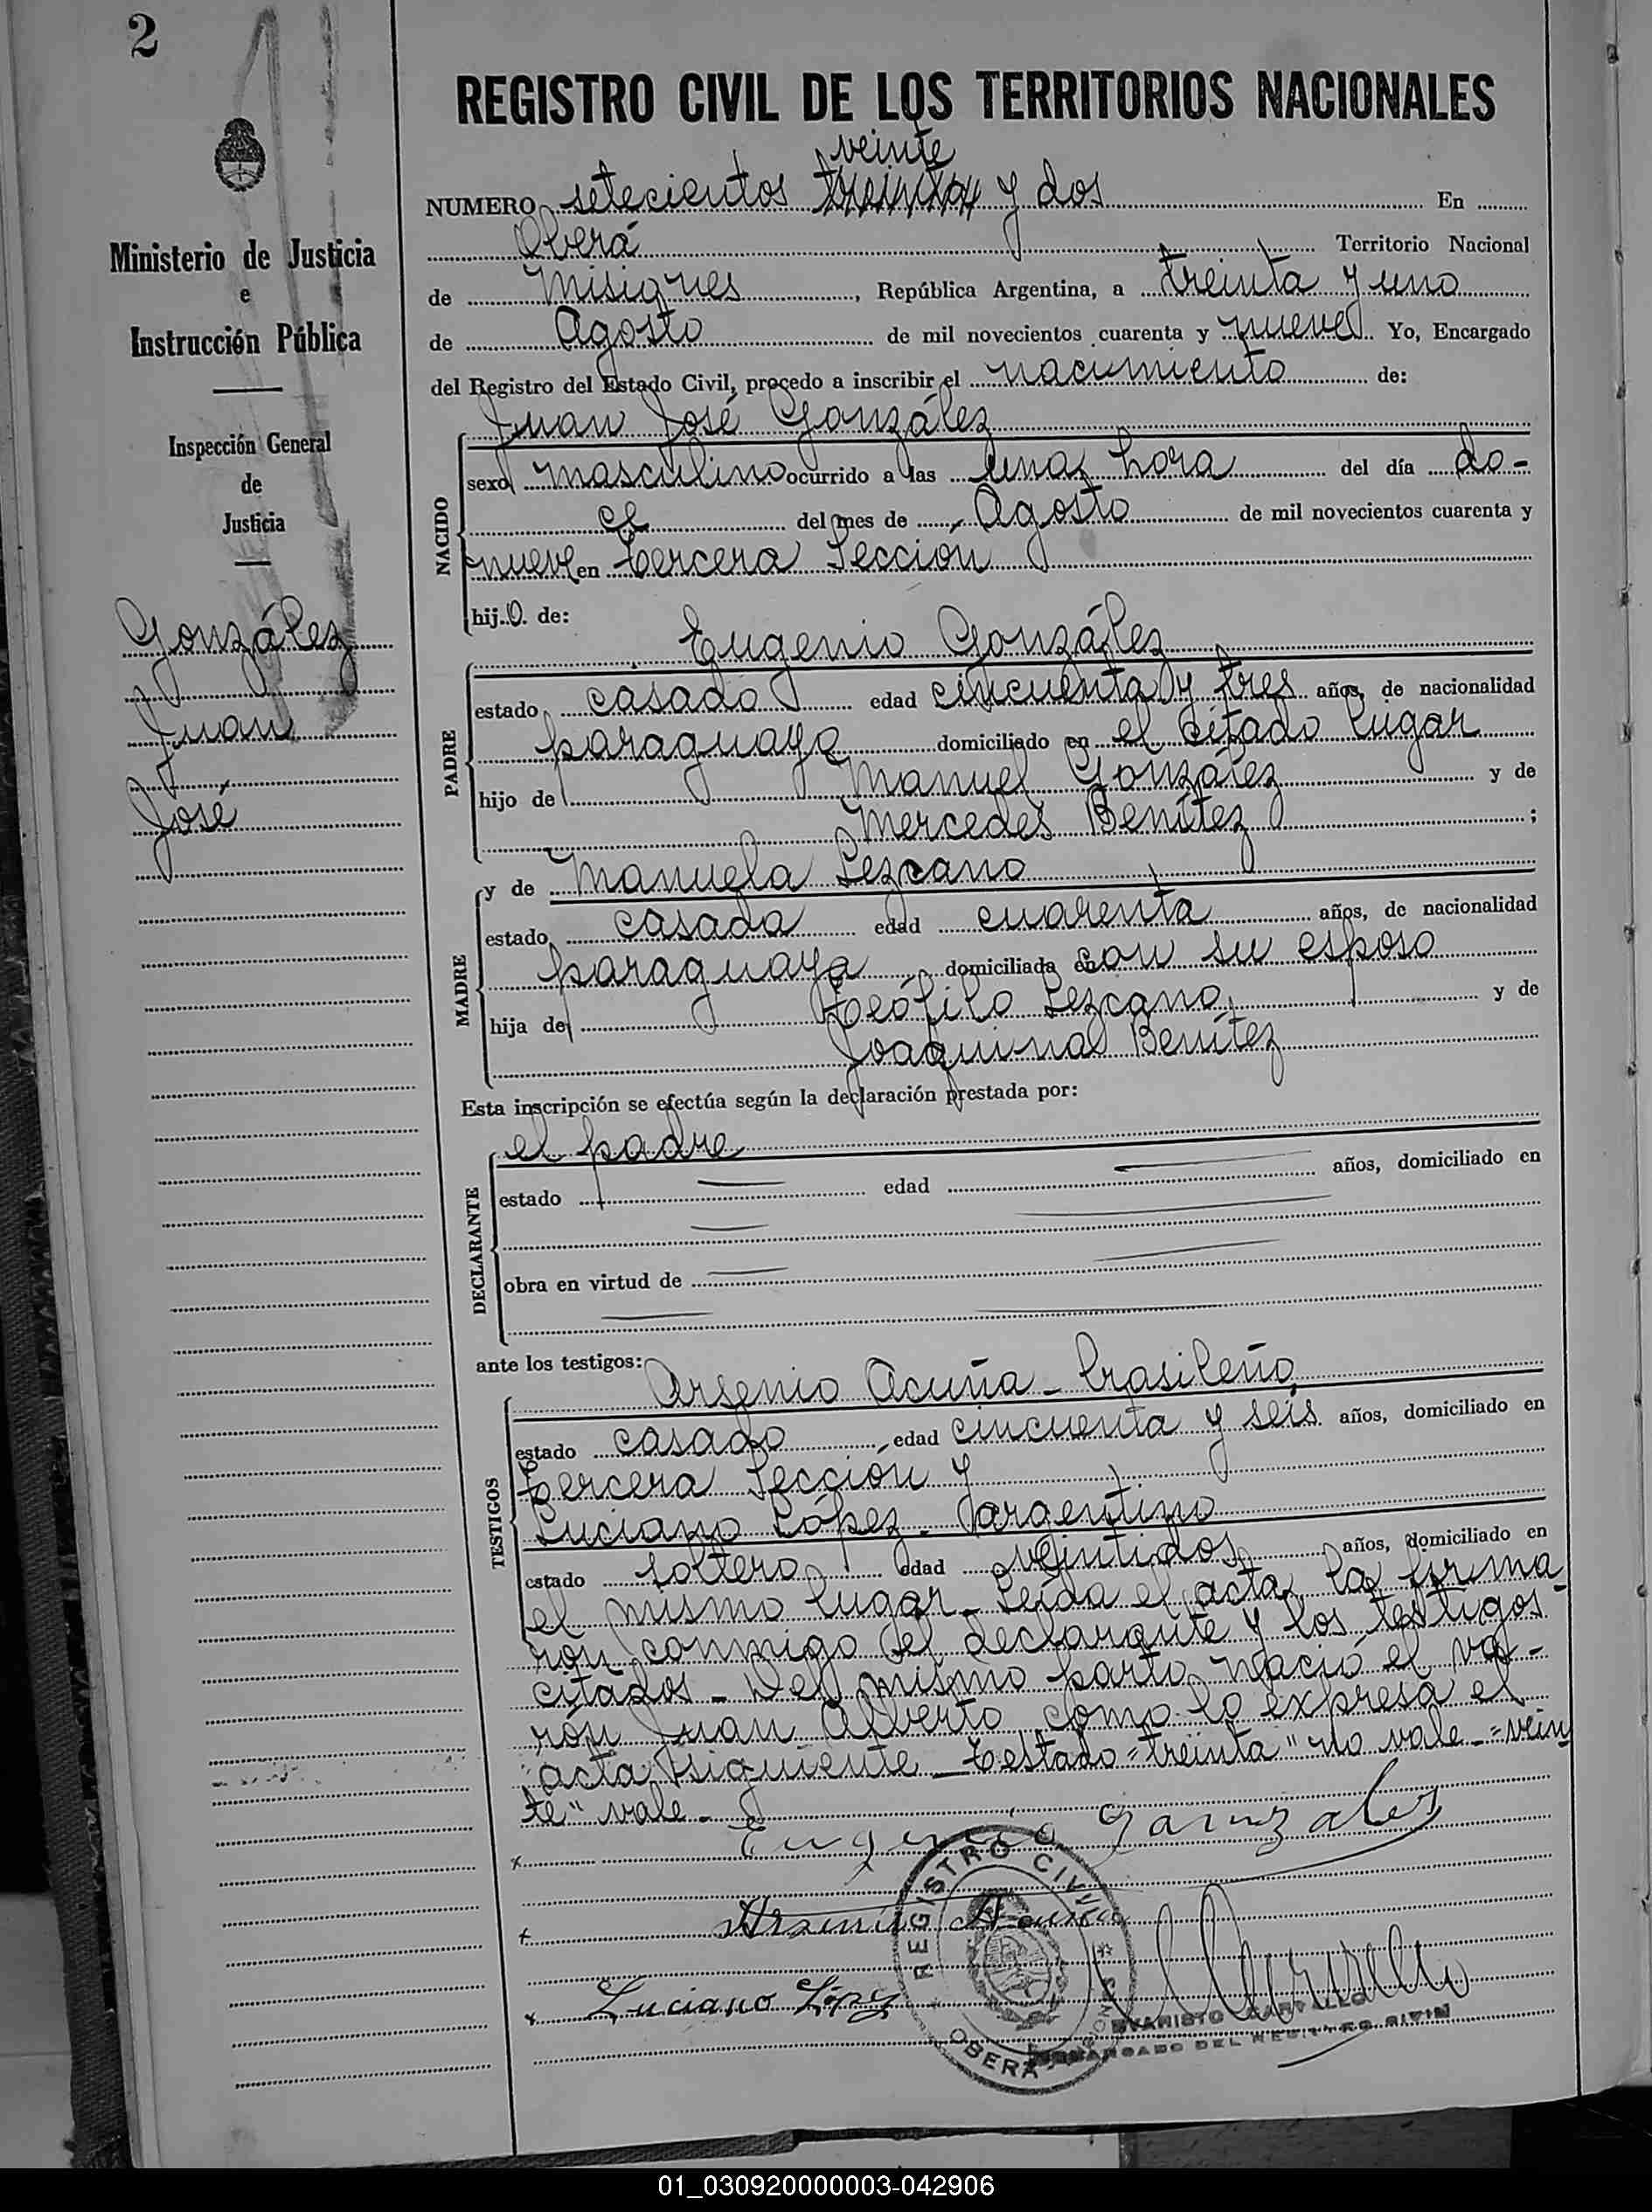 2
REGISTRO CIVIL DE LOS TERRITORIOS NACIONALES
veinte
NUMERO setecientos treinta y dos En
Oberá Territorio Nacional
de Misiones, República Argentina, a treinta y uno
de Agosto de mil novecientos cuarenta y nueve Yo, Encargado
del Registro del Estado Civil, procedo a inscribir el nacimiento de:
Ministerio de Justicia
e
Instrucción Pública
Inspección General
de
Justicia
González
Juan
José
NACIDO
Juan José González
sexo masculino ocurrido a las una hora del día do-
ce del mes de Agosto de mil novecientos cuarenta y
nueve en tercera Sección
hijo de:
PADRE
Eugenio González
estado casado edad cincuenta y tres años, de nacionalidad
paraguaya domiciliado en el citado lugar
hijo de Manuel González y de
Mercedes Benítez ;
MADRE
y de Manuela Lezcano
estado casada edad cuarenta años, de nacionalidad
paraguaya domiciliada con su esposo
hija de Teófilo Lezcano y de
Joaquina Benítez
Esta inscripción se efectúa según la declaración prestada por:
DECLARANTE
el padre
estado edad años, domiciliado en
obra en virtud de
ante los testigos:
TESTIGOS
Arsenio Acuña - brasileño
estado casado edad cincuenta y seis años, domiciliado en
tercera Sección y
Luciano López - argentino
estado soltero edad veintidos años, domiciliado en
el mismo lugar - Leída el acta, la firma-
ron conmigo el declarante y los testigos
citados - Del mismo parto nació el va-
rón Juan Alberto como lo expresa el
acta siguiente - Testado="treinta" no vale -="vein
te" vale -
Eugenio Gainzales
Arsenio Acuña
Luciano López
REGISTRO CIVIL
OBERÁ
EVARISTO
ENCARGADO DEL REGISTRO CIVIL
01_030920000003-042906